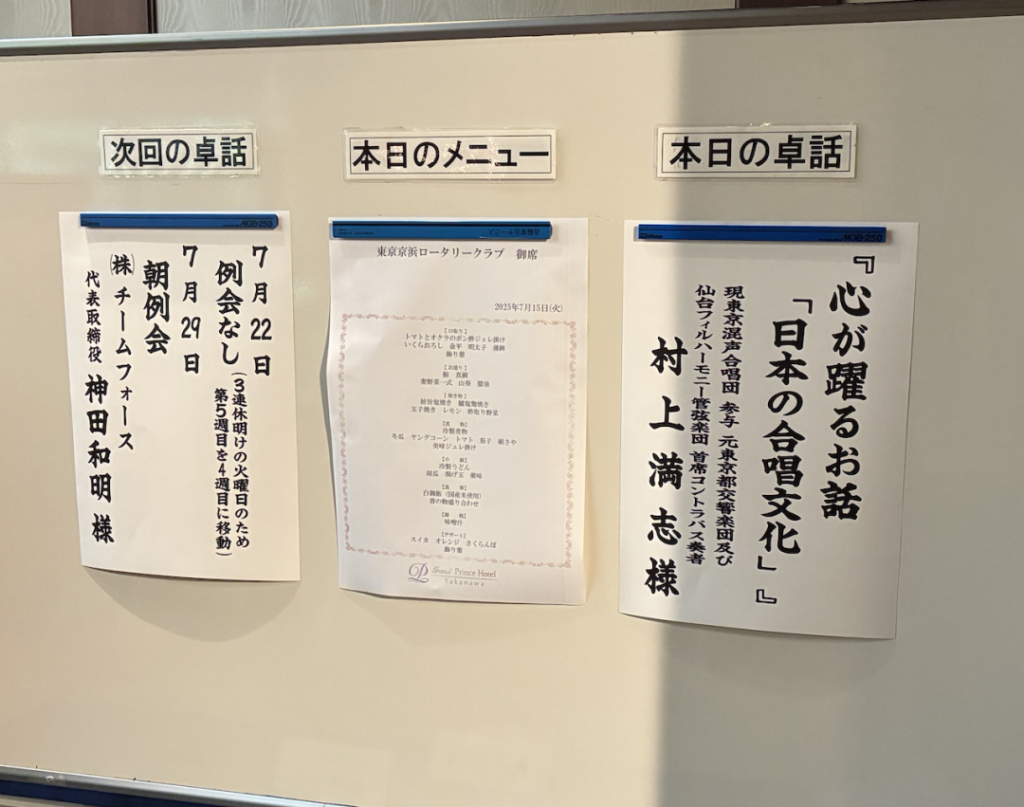 次回の卓話
7月22日
例会なし(3連休明けの火曜日のため
第5週目を4週目に移動)
7月29日
朝例会
㈱チームフォース
代表取締役 神田和明 様
本日のメニュー
東京京浜ロータリークラブ 御席
2025年7月15日(火)
トマトとオクラのポン酢ジュレ掛け
いくらおろし 金平 明太子
飾り葉
山葵 醤油
玉子焼き レモン 酢取り野菜
冷製煮物
冬瓜 ヤングコーン トマト 茄子 絹さや
美味ジュレ掛け
冷製うどん
揚げ玉 薬味
白御飯(国産米使用)
香の物盛り合わせ
味噌汁
【デザート】
スイカ オレンジ さくらんぼ
飾り葉
Grand Prince Hotel
Takanawa
本日の卓話
『心が躍るお話
「日本の合唱文化」』
現東京混声合唱団 参与 元東京都交響楽団及び
仙台フィルハーモニー管弦楽団 首席コントラバス奏者
村上満志様
MGB-250